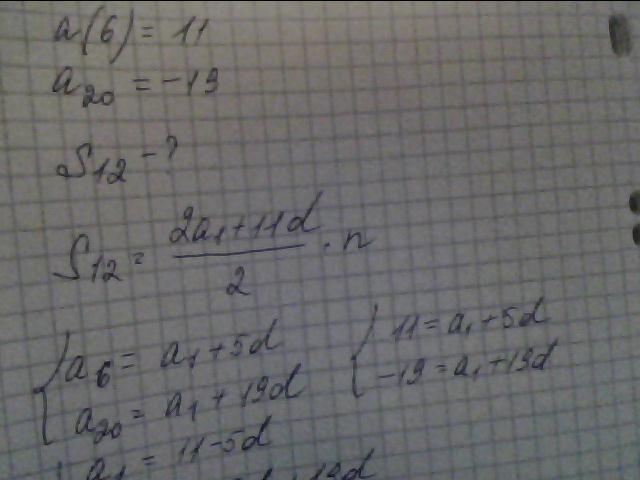 a(6) = 11
a20 = -19
S12 - ?
S12 = (2a1 + 11d)/2 · n
{ a6 = a1 + 5d
a20 = a1 + 19d
{ 11 = a1 + 5d
-19 = a1 + 19d
{ a1 = 11 - 5d
+ 19d